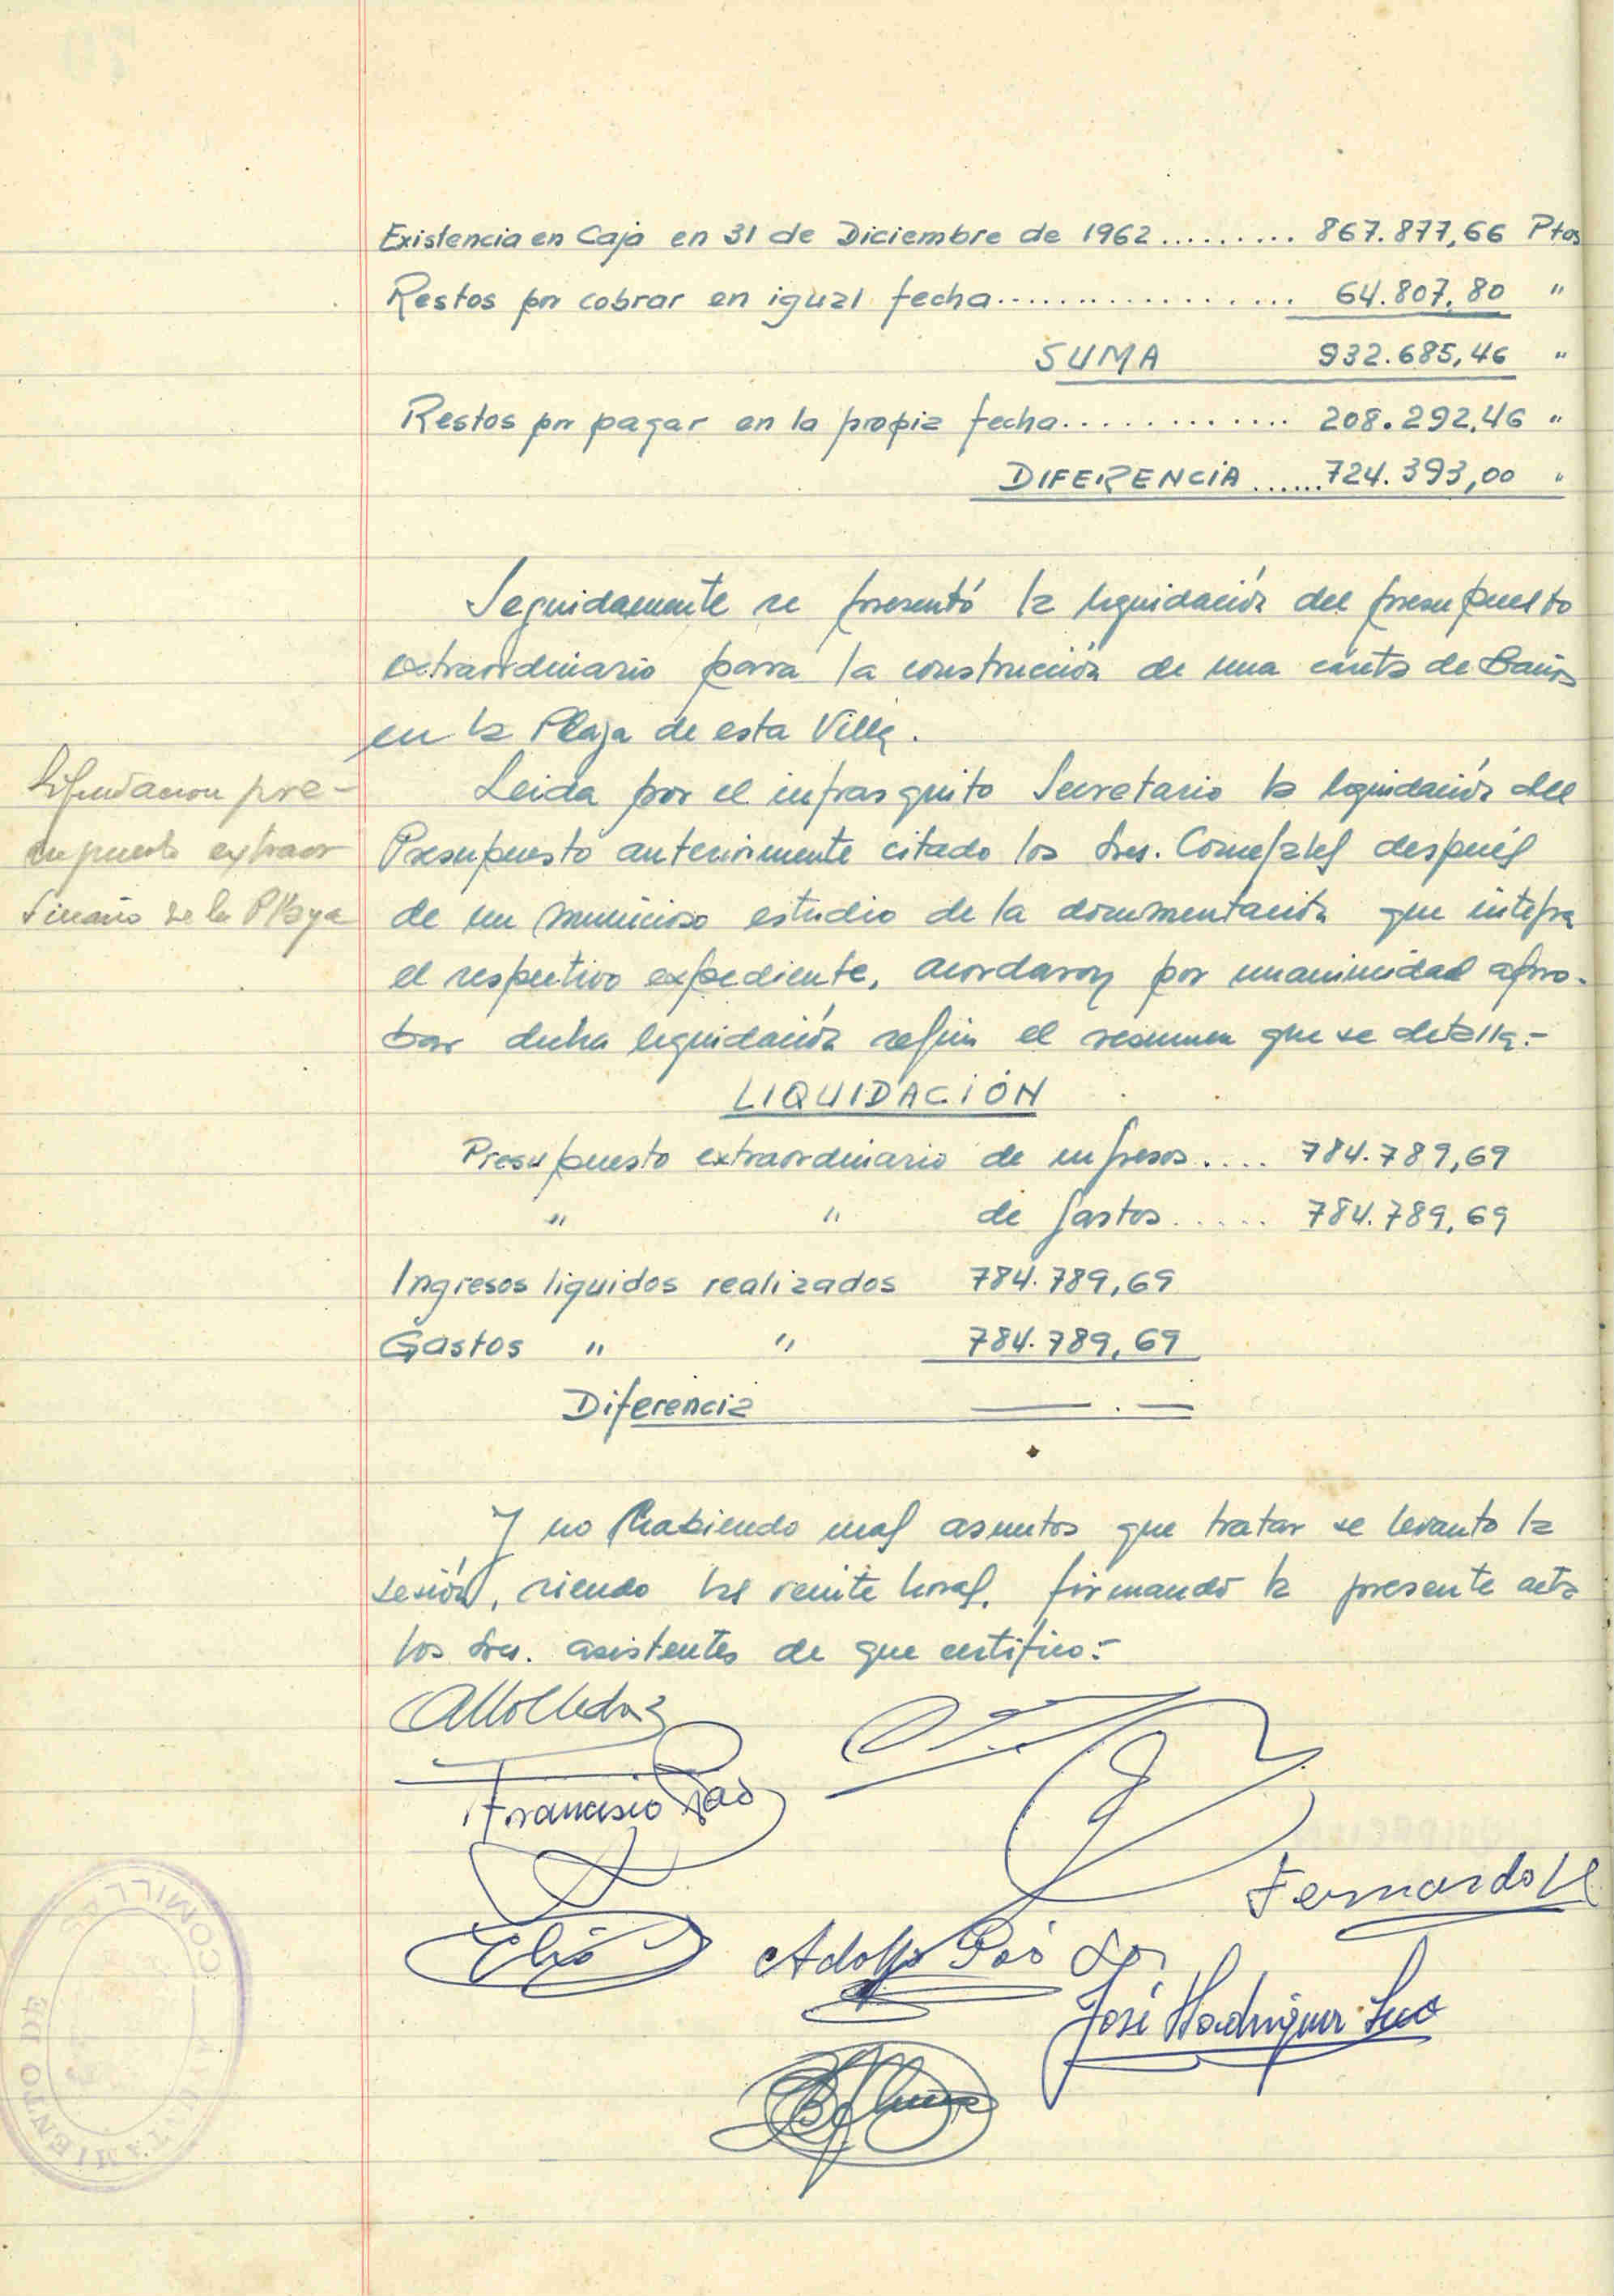 Existencia en Caja en 31 de Diciembre de 1962......... 867.877,66 Ptas
Restos por cobrar en igual fecha.................. 64.807,80 "
SUMA 932.685,46 "
Restos por pagar en la propia fecha............. 208.292,46 "
DIFERENCIA ......724.393,00 "
Seguidamente se presentó la liquidación del presupuesto
extraordinario para la construcción de una caseta de Baños
en la Playa de esta Villa.
Liquidacion pre-
supuesto extraor
dinario de la Playa
Leida por el infrasquito Secretario la liquidación del
Presupuesto anteriormente citado los Sres. Concejales después
de un municioso estudio de la documentación que integra
el respectivo expediente, acordaron por unanimidad apro-
bar dicha liquidación según el resumen que se detalla.-
LIQUIDACIÓN
Presupuesto extraordinario de ingresos.... 784.789,69
" " de gastos...... 784.789,69
Ingresos liquidos realizados 784.789,69
Gastos " " 784.789,69
Diferencia —— . —
Y no habiendo mas asuntos que tratar se levanto la
sesión, siendo las veinte horas, firmando la presente acta
los Sres. asistentes de que certifico:-
Francisco
Fernando
Elio Adolfo
José Rodriguez
AYUNTAMIENTO DE COMILLAS